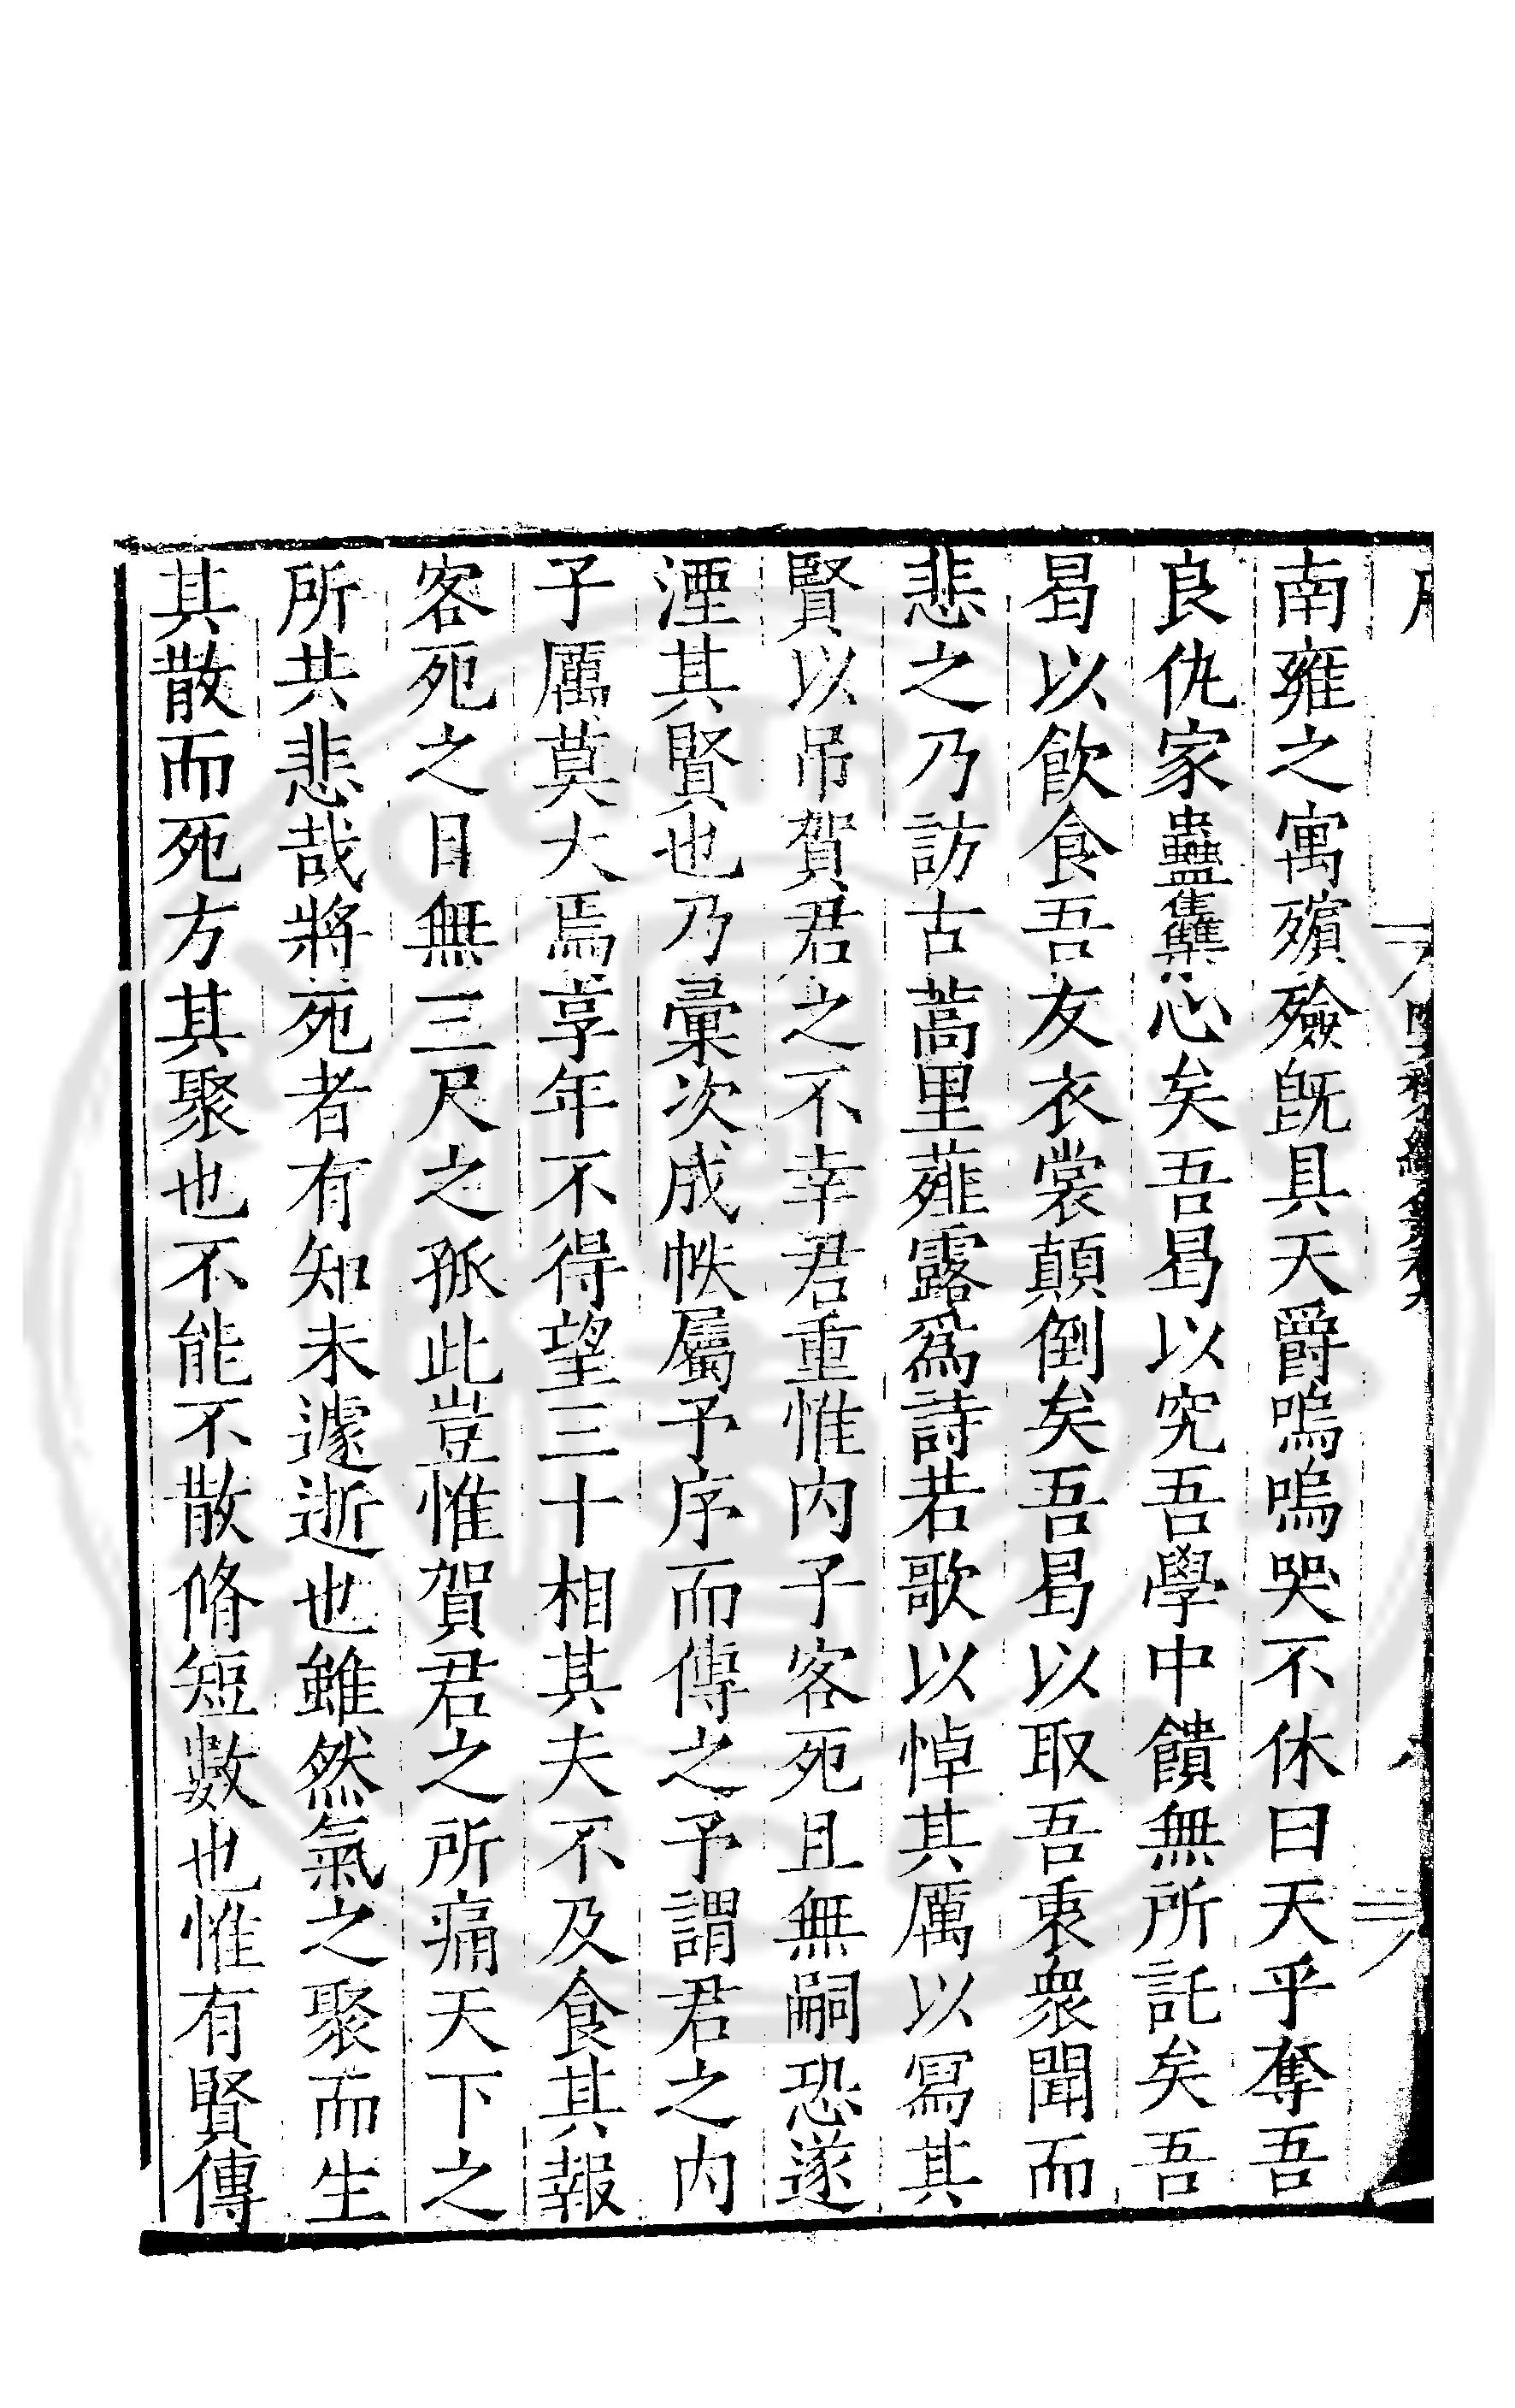 南雍之寓殯殮旣具天爵嗚嗚哭不休曰天乎奪吾
良仇家蠱雧心矣吾曷以究吾學中饋無所託矣吾
曷以飮食吾友衣裳顛倒矣吾曷以取吾衷衆聞而
悲之乃訪古蒿里薤露爲詩若歌以悼其厲以冩其
賢以吊賀君之不幸君重惟内子客死且無嗣恐遂
湮其賢也乃彙次成帙屬予序而傳之予謂君之内
子厲莫大焉享年不得望三十相其夫不及食其報
客死之目無三尺之孤此豈惟賀君之所痛天下之
所共悲哉將死者有知未遽逝也雖然氣之聚而生
其散而死方其聚也不能不散脩短數也惟有賢傳